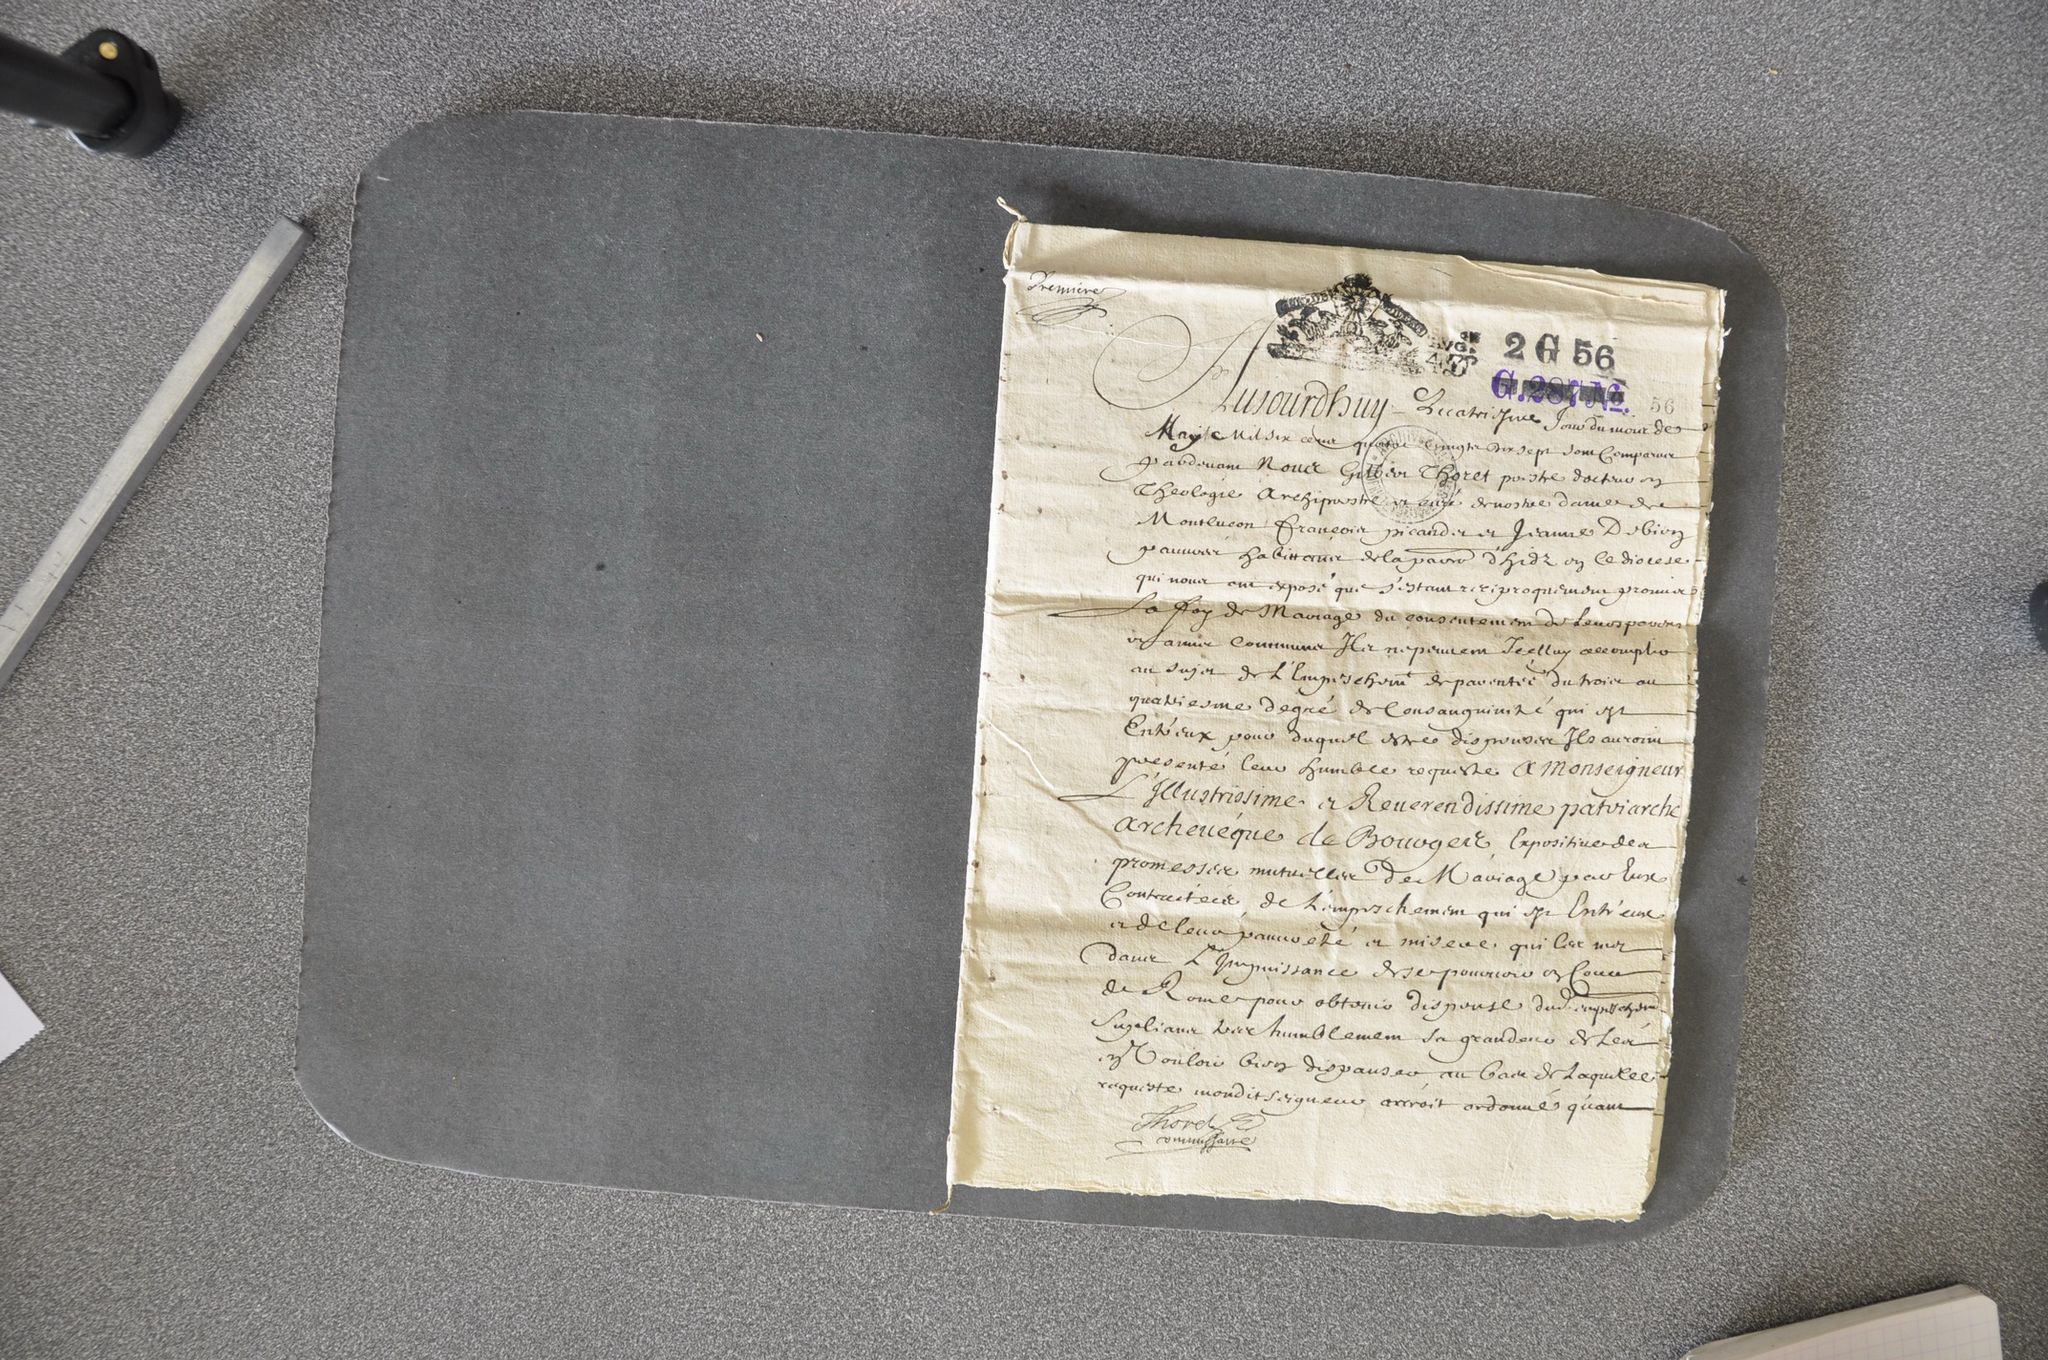 Premiere
2 G 56
G. 287 No.
56
Aujourdhuy quatriesme Jour du mois de
May Mil six cens quatre vingts dix sept sont Comparus
pardevant Nous Gilbert Thoret prestre docteur en
Theologie Archiprestre et curé de nostre dame de
Montluçon françois picandet et Jeanne Debien
pauvres habittans de la parr d'hids en ce diocese
qui nous ont exposé que s'estant reciproquement promis
La foy de Mariage du consentement de Leurs parens
et amis communs Ils ne peuvent Icelluy accomplir
au sujet de L'Empeschemt de parentée du trois au
quatriesme degré de Consanguinité qui est
Entreux pour duquel estre dispenses Ils auroint
presenté leur humble requeste a Monseigneur
L'Illustrissime et Reverendissime patriarche
archevéque de Bourges Expositive des
promesses mutuelles de Mariage par Eux
Contractées de L'empeschement qui est Entr'eux
et de leur pauvreté et misere qui les met
dans L'Impuissance de se pourvoir en Cour
de Rome pour obtenir dispense dud empeschem
Supliant tres humblement sa grandeur de Les
en Vouloir bien dispanser au bas de Laquelle
requeste mondit seigneur auroit ordonné quant
Thoret
commissaire